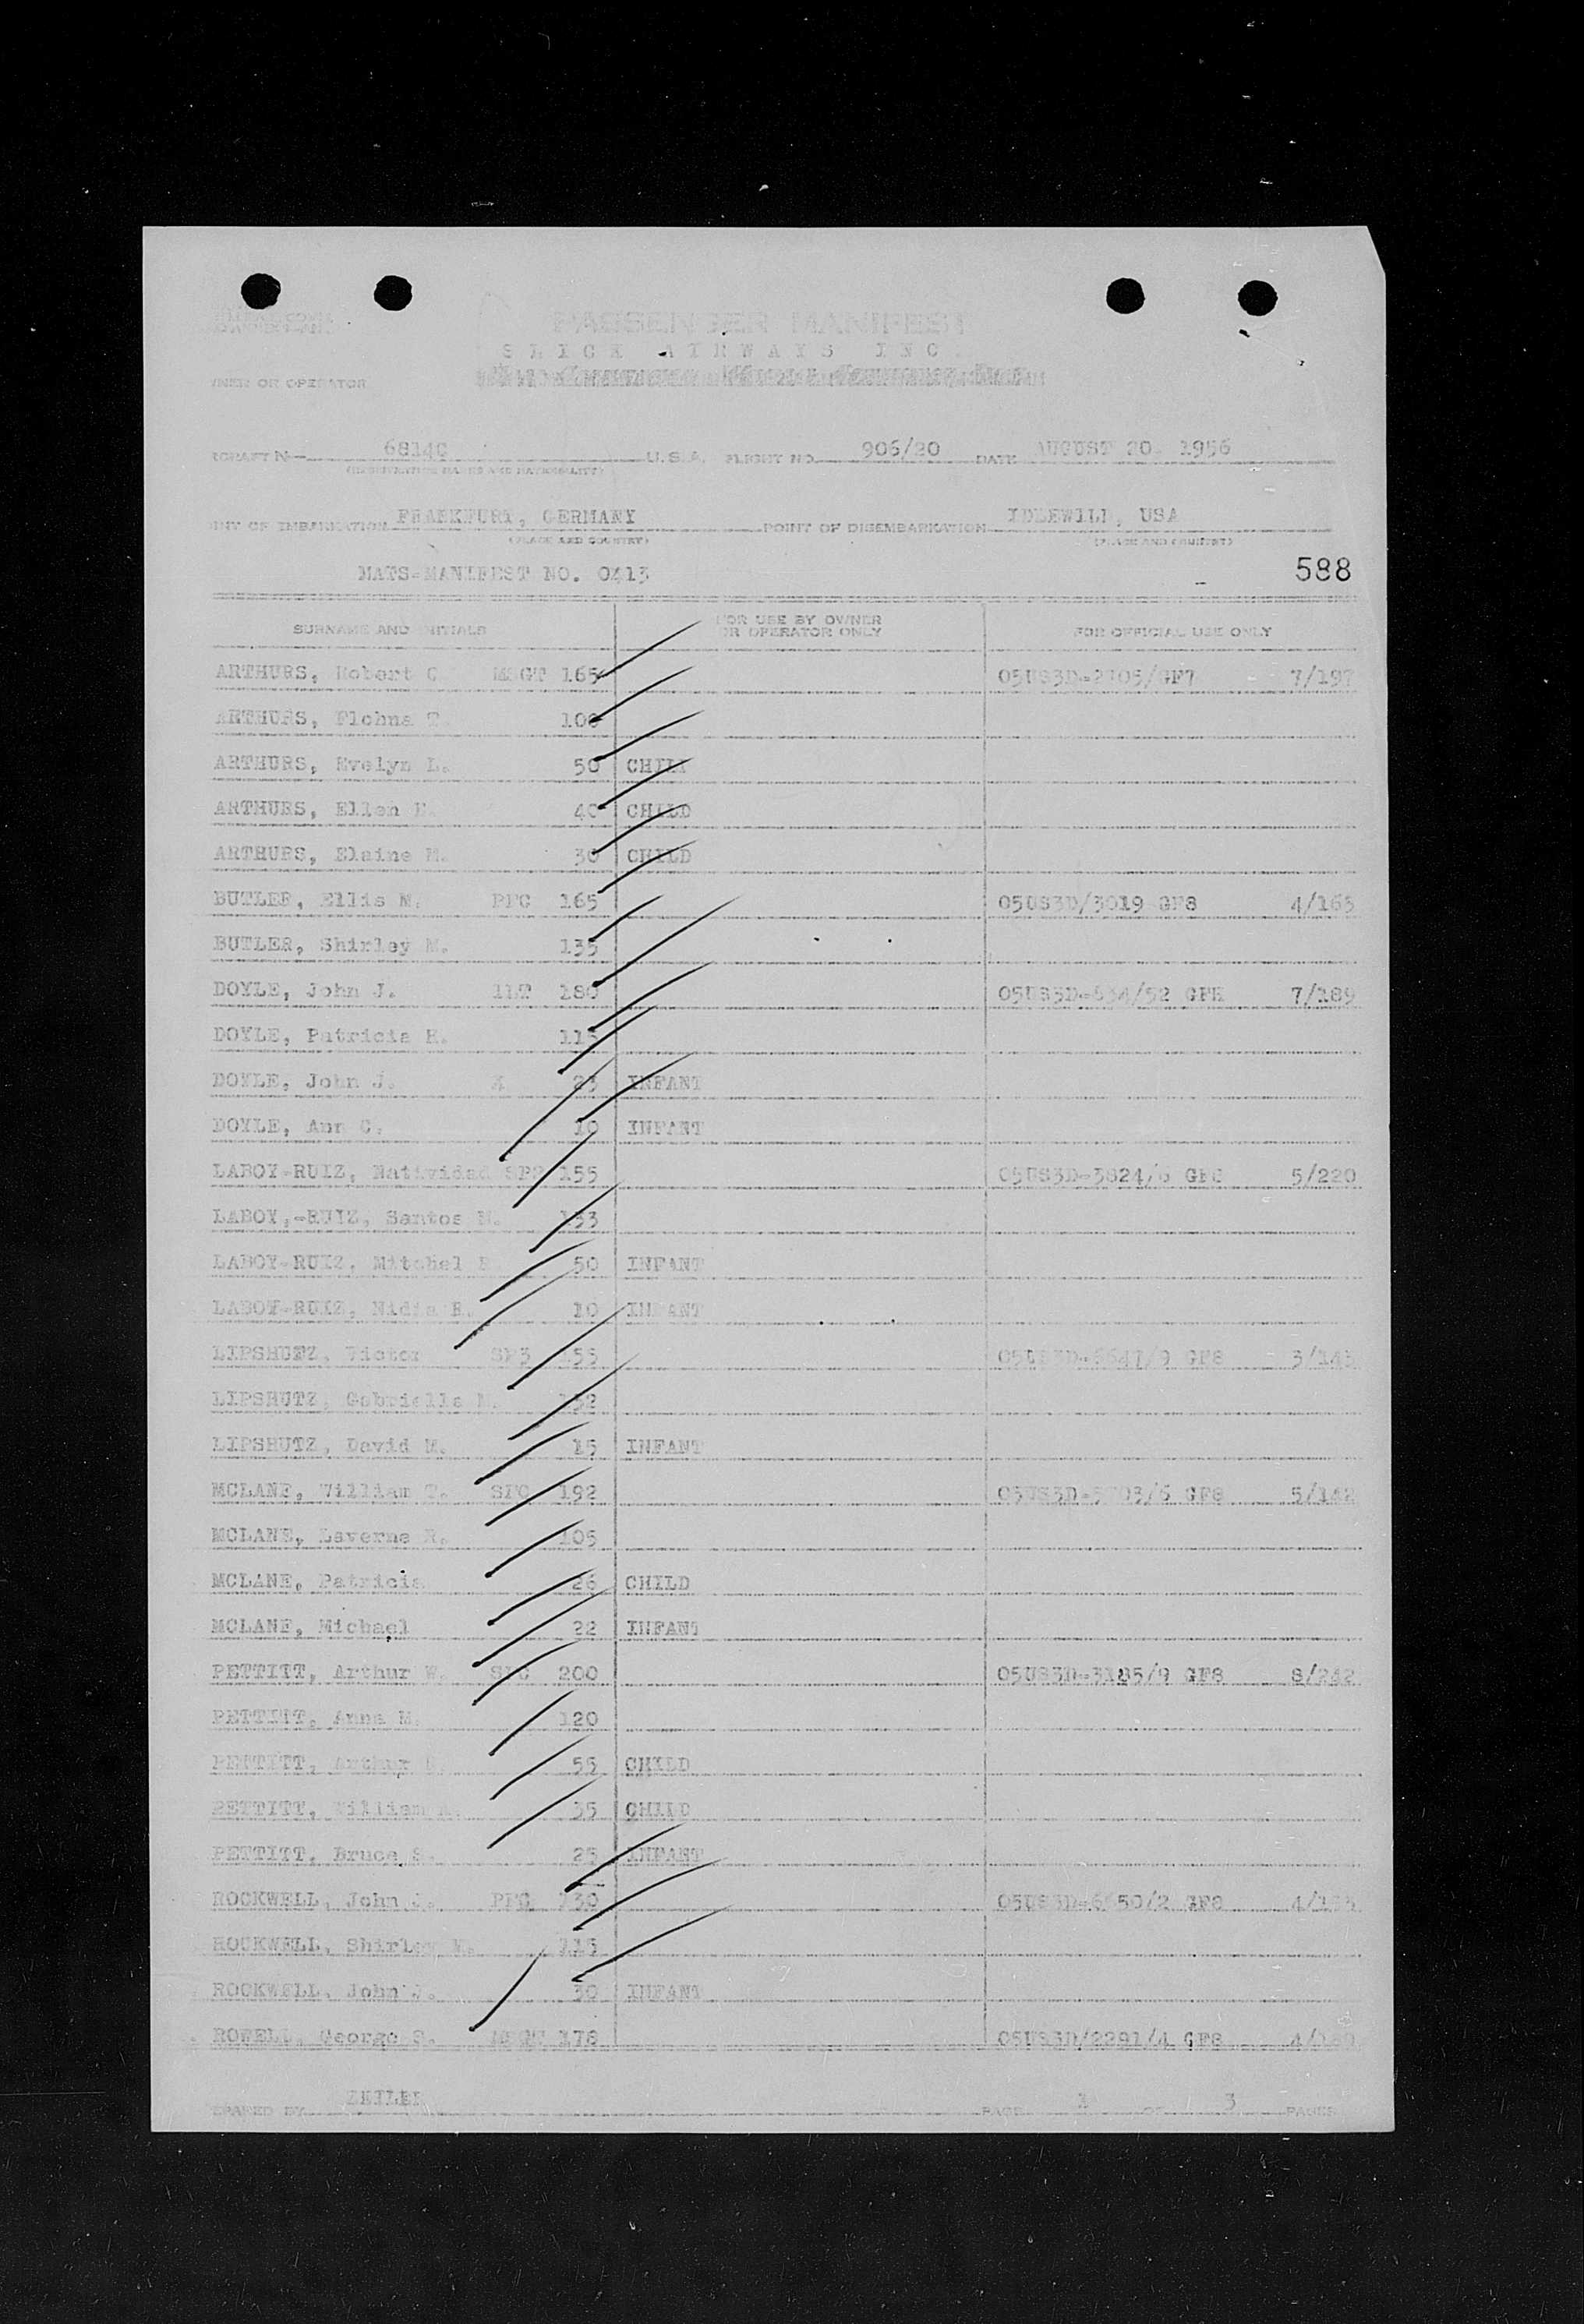 PASSENGER MANIFEST
SLICK AIRWAYS INC.
OWNER OR OPERATOR
AIRCRAFT N— 6814C U.S.A. FLIGHT NO. 906/20 DATE AUGUST 20. 1956
POINT OF EMBARKATION FRANKFURT, GERMANY POINT OF DISEMBARKATION IDLEWILD, USA
(PLACE AND COUNTRY) (PLACE AND COUNTRY)
MATS-MANIFEST NO. 0413 588
SURNAME AND INITIALS FOR USE BY OWNER OR OPERATOR ONLY FOR OFFICIAL USE ONLY
ARTHURS, Robert C MSGT 165 05US3D-2705/GF7 7/197
ARTHURS, 100
ARTHURS, Evelyn L. 50 CHILD
ARTHURS, Ellen 40 CHILD
ARTHURS, Elaine M. 30 CHILD
BUTLER, Ellis M. PFC 165 05US3D/3019 GF8 4/165
BUTLER, Shirley M. 135
DOYLE, John J. 1LT 180 7/189
DOYLE, Patricia H. 115
DOYLE, John J. 23 INFANT
DOYLE, Ann C. 10 INFANT
LABOY-RUIZ, Natividad SP2 155 5/220
LABOY,-RUIZ, Santos 153
LABOY-RUIZ, Mitchel 50 INFANT
LABOY-RUIZ, Nidia 10 INFANT
LIPSHUTZ, Victor SP3 155 GF8 3/143
LIPSHUTZ, Gabriella 132
LIPSHUTZ, David M. 15 INFANT
MCLANE, William T. SFC 192 GF8 5/142
MCLANE, Laverne R. 105
MCLANE, Patricia 26 CHILD
MCLANE, Michael 22 INFANT
PETTITT, Arthur W. SFC 200 05US3D-3185/9 GF8 8/242
PETTITT, Anna M. 120
PETTITT, Arthur 55 CHILD
PETTITT, William 35 CHILD
PETTITT, Bruce S. 25 INFANT
ROCKWELL, John J. PFC 130 05US3D-6650/2 GF8
ROCKWELL, Shirley 115
ROCKWELL, John J. 30 INFANT
ROWELL, George S. MSGT 178 05US3D/2291/4 GF8
PREPARED BY PAGE 1 OF 3 PAGES